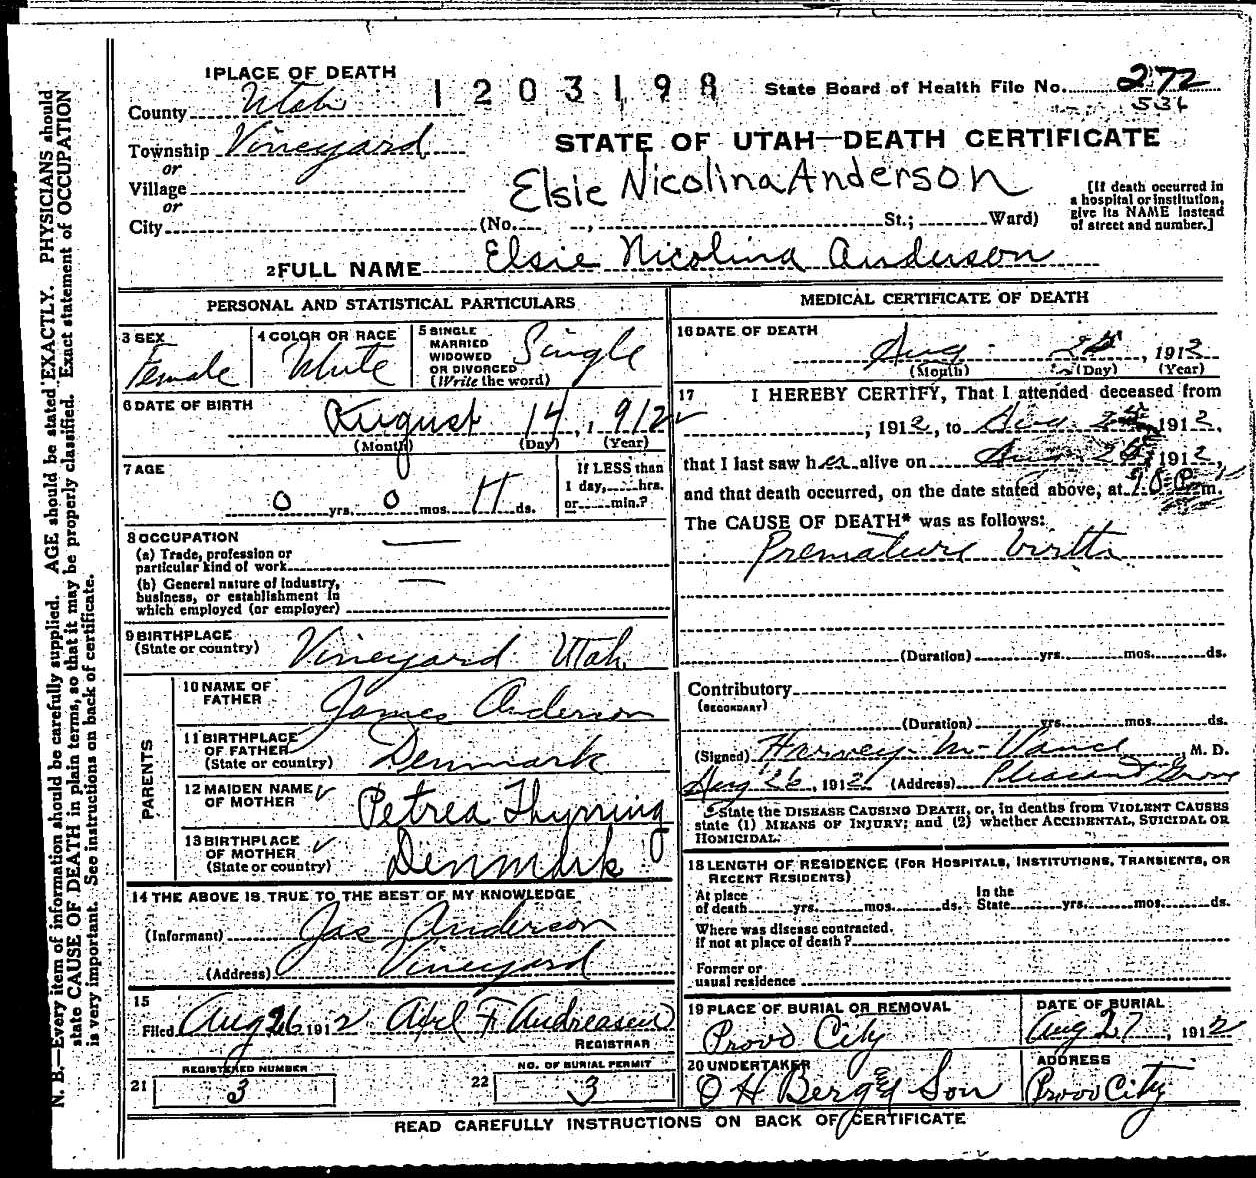 1 PLACE OF DEATH
1203198
State Board of Health File No. 272
536
County Utah
Township Vineyard
or
Village
or
City
STATE OF UTAH—DEATH CERTIFICATE
Elsie Nicolina Anderson
(No. , St.; Ward)
[If death occurred in
a hospital or institution,
give its NAME instead
of street and number.]
2 FULL NAME Elsie Nicolina Anderson
PERSONAL AND STATISTICAL PARTICULARS
3 SEX
Female
4 COLOR OR RACE
White
5 SINGLE
MARRIED
WIDOWED
OR DIVORCED
(Write the word)
Single
6 DATE OF BIRTH
August 14, 1912
(Month) (Day) (Year)
7 AGE
0 yrs. 0 mos. 11 ds.
If LESS than
1 day, hrs.
or min.?
8 OCCUPATION
(a) Trade, profession or
particular kind of work
(b) General nature of industry,
business, or establishment in
which employed (or employer)
9 BIRTHPLACE
(State or country)
Vineyard Utah
PARENTS
10 NAME OF
FATHER
James Anderson
11 BIRTHPLACE
OF FATHER
(State or country)
Denmark
12 MAIDEN NAME
OF MOTHER
Petrea Thyrring
13 BIRTHPLACE
OF MOTHER
(State or country)
Denmark
14 THE ABOVE IS TRUE TO THE BEST OF MY KNOWLEDGE
(Informant) Jas Anderson
(Address) Vineyard
15
Filed Aug 26 1912 Axel F Andreasen
REGISTRAR
21 REGISTERED NUMBER
3
22 NO. OF BURIAL PERMIT
3
MEDICAL CERTIFICATE OF DEATH
16 DATE OF DEATH
Aug 25, 1912
(Month) (Day) (Year)
17 I HEREBY CERTIFY, That I attended deceased from
, 1912, to Aug. 1912,
that I last saw her alive on Aug 25 1912,
and that death occurred, on the date stated above, at 10 P m.
The CAUSE OF DEATH* was as follows:
Premature birth
(Duration) yrs. mos. ds.
Contributory
(SECONDARY)
(Duration) yrs. mos. ds.
(Signed) Harvey M. Vance, M. D.
Aug 26, 1912 (Address) Pleasant Grove
*State the DISEASE CAUSING DEATH, or, in deaths from VIOLENT CAUSES
state (1) MEANS OF INJURY; and (2) whether ACCIDENTAL, SUICIDAL OR
HOMICIDAL.
18 LENGTH OF RESIDENCE (FOR HOSPITALS, INSTITUTIONS, TRANSIENTS, OR
RECENT RESIDENTS)
At place
of death yrs. mos. ds.
In the
State yrs. mos. ds.
Where was disease contracted.
if not at place of death?
Former or
usual residence
19 PLACE OF BURIAL OR REMOVAL
Provo City
DATE OF BURIAL
Aug 27, 1912
20 UNDERTAKER
O H Berg & Son
ADDRESS
Provo City
READ CAREFULLY INSTRUCTIONS ON BACK OF CERTIFICATE
N. B.—Every item of information should be carefully supplied. AGE should be stated EXACTLY. PHYSICIANS should
state CAUSE OF DEATH in plain terms, so that it may be properly classified. Exact statement of OCCUPATION
is very important. See instructions on back of certificate.